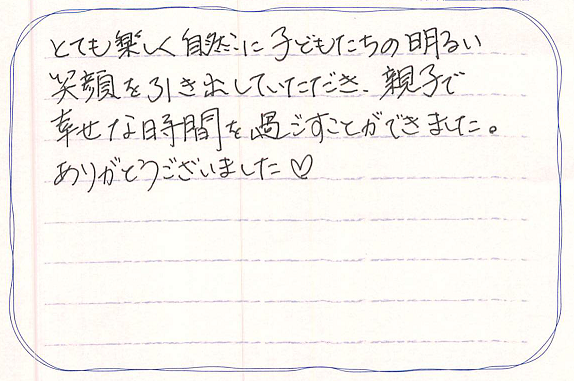 とても楽しく自然に子どもたちの明るい
笑顔を引き出していただき、親子で
幸せな時間を過ごすことができました。
ありがとうございました♡